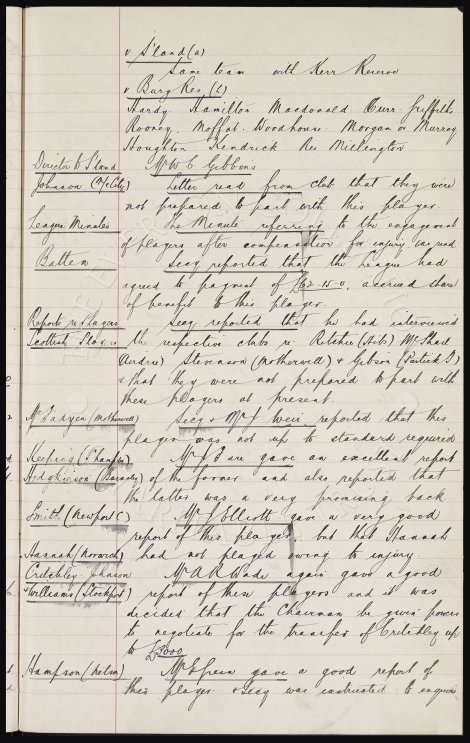 v S'land (a)
Same team with Kerr Reserve
v Bury Res. (h)
Hardy. Hamilton Macdonald Curr Griffiths
Rooney. Moffat. Woodhouse. Morgan or Murray
Houghton Kendrick Res Millington
Director to S'land Mr W C Gibbins
Johnson (M/c City) Letter read from club that they were
not prepared to part with this player.
League Minutes The Minute referring to the engagement
of players after compensation for injury was read
Batten Secy reported that the League had
agreed to payment of £62-15-0, accrued share
of benefit to this player.
Reports re Players Secy reported that he had interviewed
Scottish Players the respective clubs re Ritchie (Hibs) McPhail
(Airdrie) Stevenson (Motherwell) & Gibson (Partick T)
& that they were not prepared to part with
these players at present.
(Motherwell) Secy & Mr J Weir reported that this
player was not up to standard required
Keeping (S'hampton) gave an excellent report
Hodgkinson (Barnsley) of the former and also reported that
the latter was a very promising back
Smith (Newport C) Mr J Elliott gave a very good
report of this player, but that Hannah
Hannah (Norwich) had not played owing to injury
Critchley Johnson Mr A R Wade again gave a good
& Williams (Stockport) report of these players and it was
decided that the Chairman be given powers
to negotiate for the transfer of Critchley up
to £3000
Hampson (Nelson) Mr E Green gave a good report of
this player & Secy was instructed to enquire